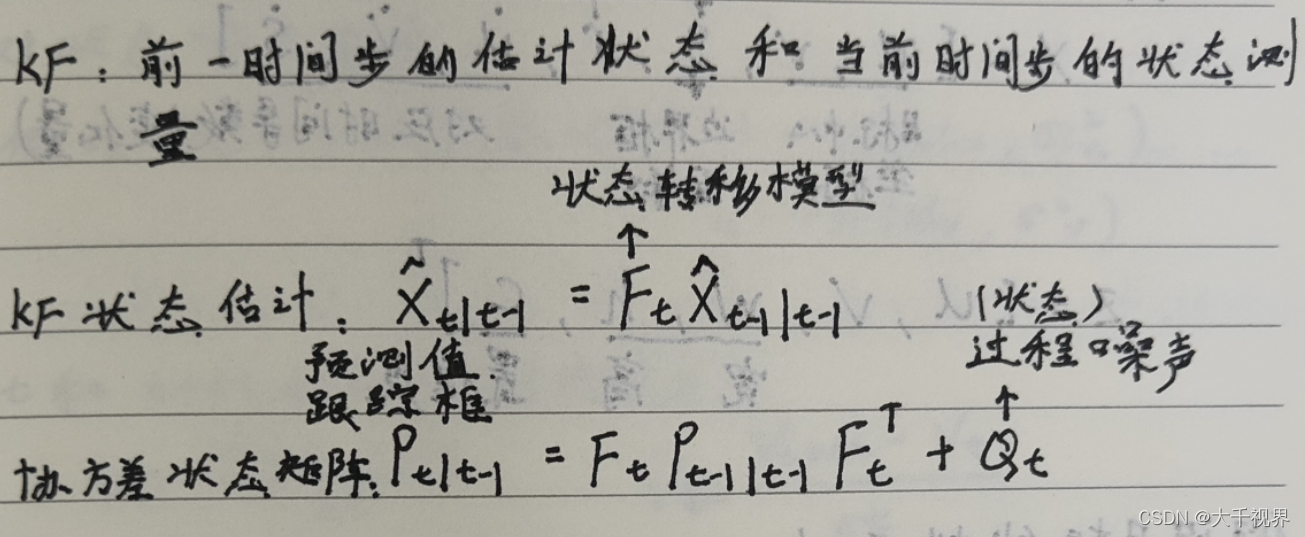 KF：前一时间步的估计状态和当前时间步的状态测
量
状态转移模型
↑
KF状态估计：X̃t|t-1 = Ft X̂t-1|t-1
(状态)
过程噪声
↑
预测值.
跟踪框
协方差状态矩阵.Pt|t-1 = Ft Pt-1|t-1 Ftᵀ + Qt
CSDN @大千视界